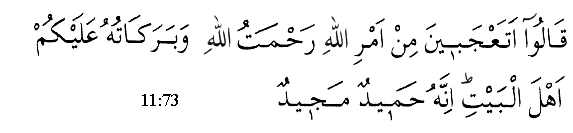 قَالُوٓا اَتَعْجَبٖينَ مِنْ اَمْرِ اللّٰهِ رَحْمَتُ اللّٰهِ وَبَرَكَاتُهُ عَلَيْكُمْ
اَهْلَ الْبَيْتِۜ اِنَّهُ حَمٖيدٌ مَجٖيدٌ 11:73